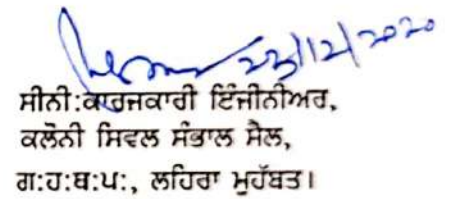 23/12/2020
ਸੀਨੀ:ਕਾਰਜਕਾਰੀ ਇੰਜੀਨੀਅਰ,
ਕਲੋਨੀ ਸਿਵਲ ਸੰਭਾਲ ਸੈਲ,
ਗ:ਹ:ਥ:ਪ:, ਲਹਿਰਾ ਮੁਹੱਬਤ।